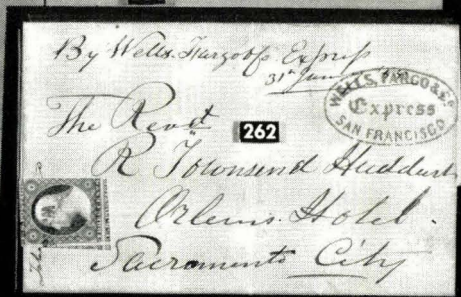 By Wells, Fargo & Co's Express
31st
WELLS, FARGO & Co.
Express
SAN FRANCISCO
The Revd
262
R Townsend Huddart
Orleans Hotel.
Sacramento City